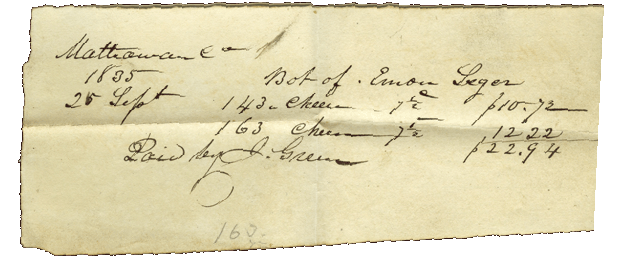 Matteawan Co
1835 Bot of Emon Leger
25 Sept 143 Cheese 7½ $10.72
163 Cheese 7½ 12 22
$22.94
Paid by J. Green
160